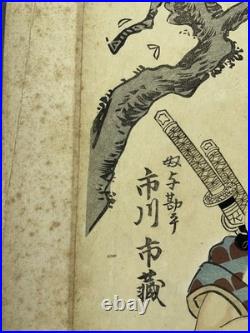 奴与勘平
市川市蔵